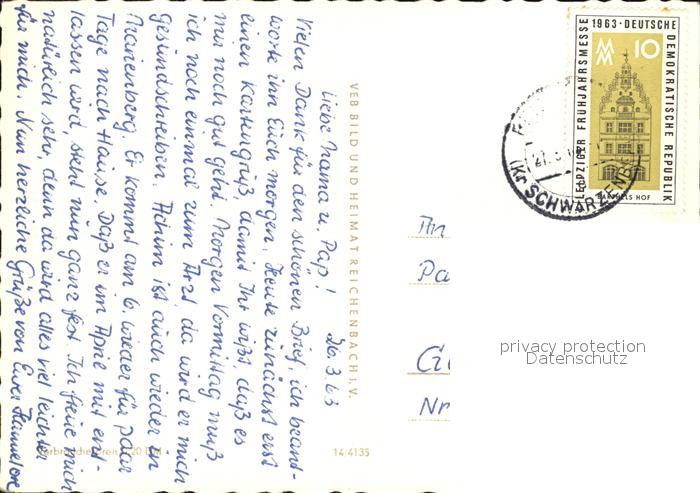 Liebe Mama u. Pap! 26.3.63
Vielen Dank für den schönen Brief, ich beant-
worte ihn Euch morgen. Heute zunächst erst
einen Kartengruß, damit Ihr wißt, daß es
mir noch gut geht. Morgen Vormittag muß
ich noch einmal zum Arzt, da wird er mich
gesundschreiben. Achim ist auch wieder in
Marienberg. Er kommt am 6. wieder für paar
Tage nach Hause. Daß er im April mit ent-
lassen wird, steht nun ganz fest. Ich freue mich
natürlich sehr, denn da wird alles viel leichter
für mich. Nun herzliche Grüße von Eurer Hannelore
VEB BILD UND HEIMAT REICHENBACH I. V.
14/4135
LEIPZIGER FRÜHJAHRSMESSE 1963 · DEUTSCHE DEMOKRATISCHE REPUBLIK
MM 10
HOF
(Kr SCHWARZENB
An
Pa
Nr
privacy protection
Datenschutz